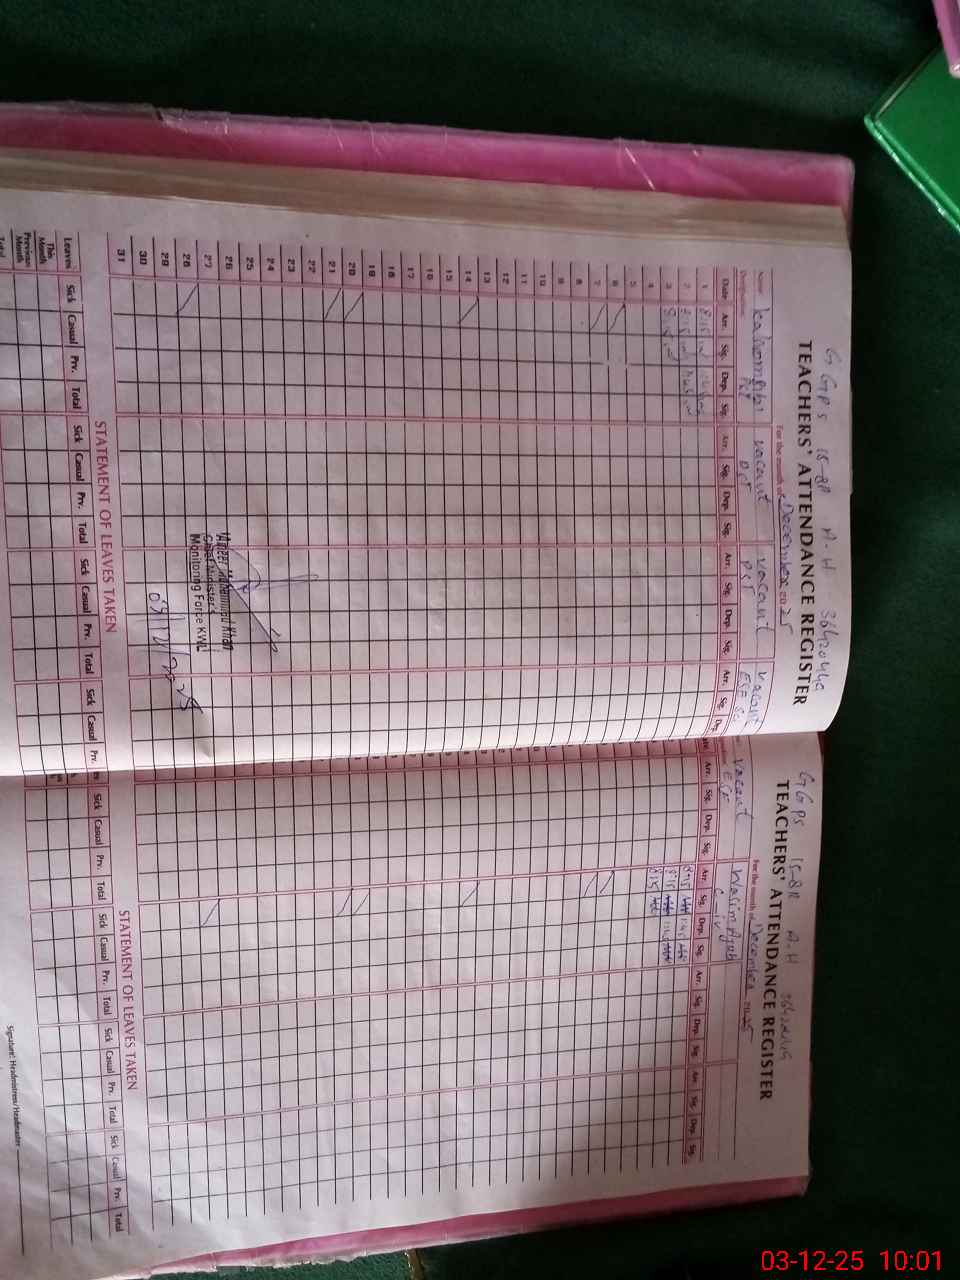 GGPS 15-8R A-H 36420449
TEACHERS' ATTENDANCE REGISTER
For the month of December 2025
Name vacant vacant vacant
Designation PST PST PST ESE Sci
Date Arr. Sig. Dep. Sig. Arr. Sig. Dep. Sig. Arr. Sig. Dep. Sig. Arr. Sig. Dep.
1 8:15
2 8:15
3 8:15
4
5
6
7
8
9
10
11
12
13
14
15
16
17
18
19
20
21
22
23
24
25
26
27
28
29
30
31
Muhammad Khan
Chief Minister's
Monitoring Force KWL
03/12/2025
STATEMENT OF LEAVES TAKEN
Leaves Sick Casual Prv. Total Sick Casual Prv. Total Sick Casual Prv. Total Sick Casual Prv.
This Month
Previous Month
Total
GGPS 15-8R A-H 36420449
TEACHERS' ATTENDANCE REGISTER
For the month of December 2025
vacant Wasim Ayub
ESE C-iv
Arr. Sig. Dep. Sig. Arr. Sig. Dep. Sig. Arr. Sig. Dep. Sig. Arr. Sig. Dep. Sig.
8:15 1:45
8:15 1:45
8:15
STATEMENT OF LEAVES TAKEN
Sick Casual Prv. Total Sick Casual Prv. Total Sick Casual Prv. Total Sick Casual Prv. Total
Signature: Headmistress/Headmaster
03-12-25 10:01